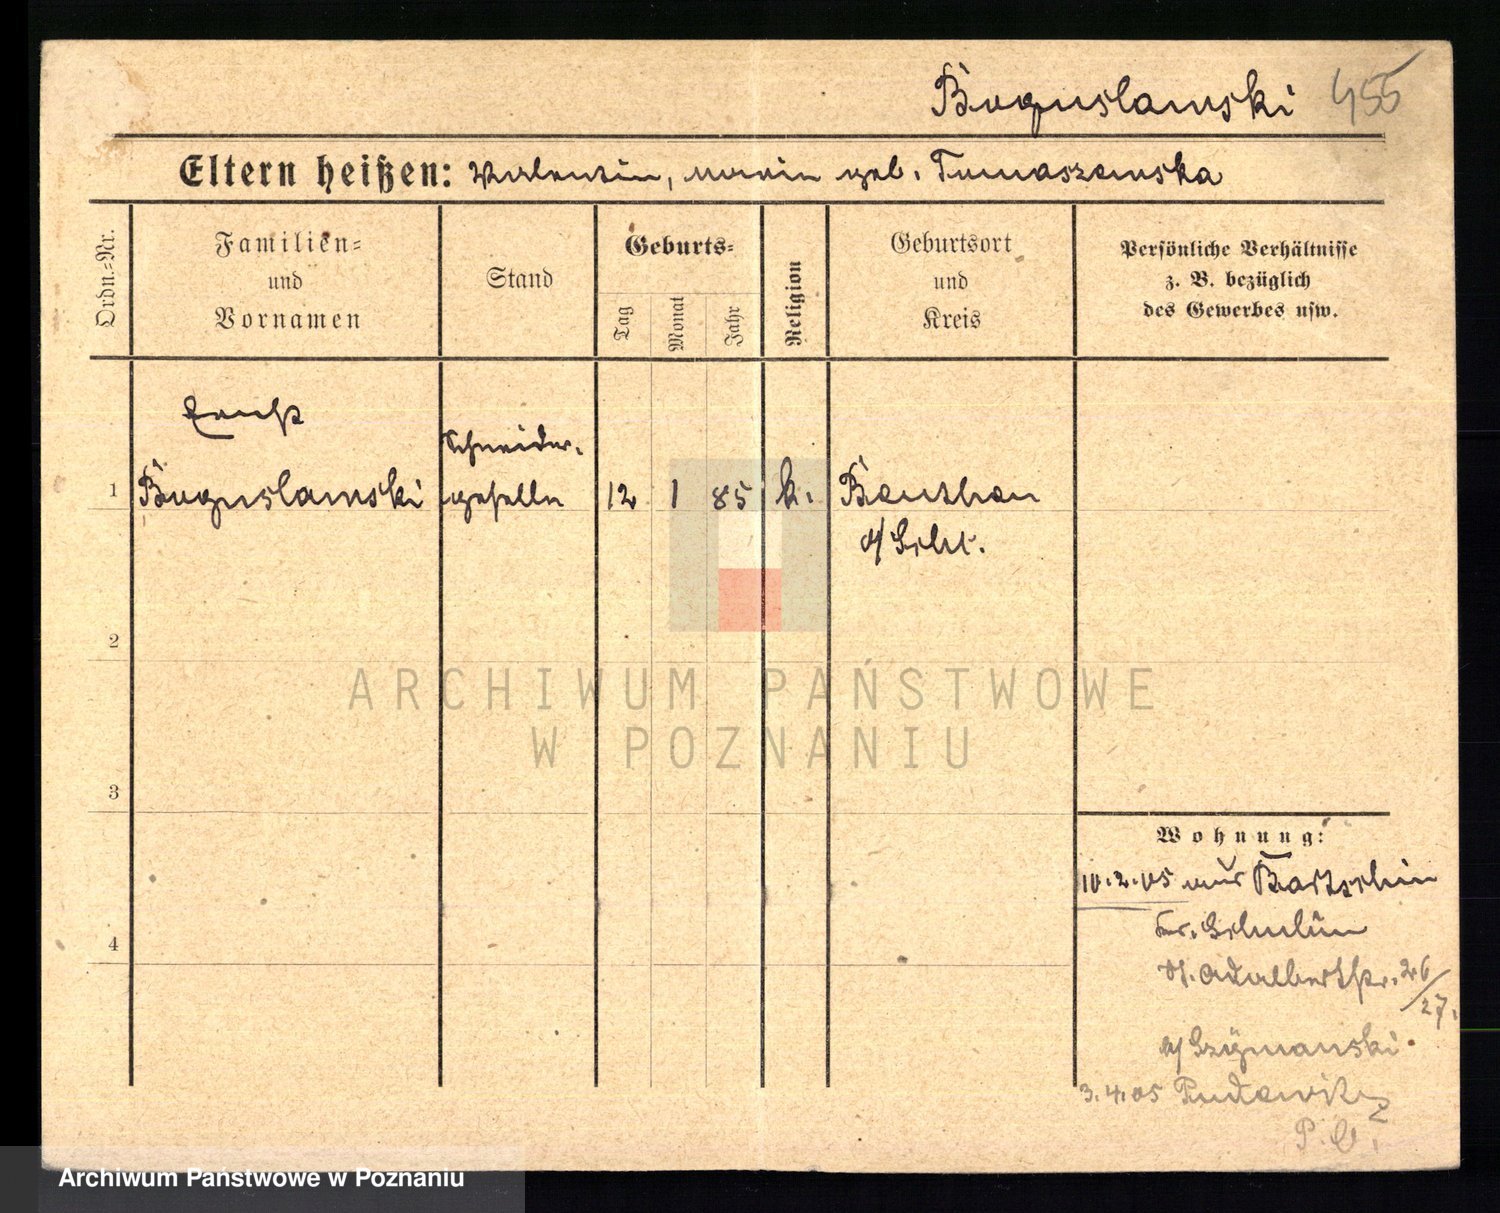 Boguslawski 455
Eltern heißen: Valentin, Marie geb. Tomaszewska
Ordn.=Nr.
Familien=
und
Vornamen
Stand
Geburts=
Tag
Monat
Jahr
Religion
Geburtsort
und
Kreis
Persönliche Verhältnisse
z. B. bezüglich
des Gewerbes usw.
Ernst
Schneider-
1 Boguslawski geselle 12 1 85 k. Beuthen
2
3
4
Wohnung:
10.2.05 aus Bartschin
St. Adalbertstr. 26/27.
b/ Szÿmanski
3.4.05 Pudewitz
ARCHIWUM PAŃSTWOWE
W POZNANIU
Archiwum Państwowe w Poznaniu